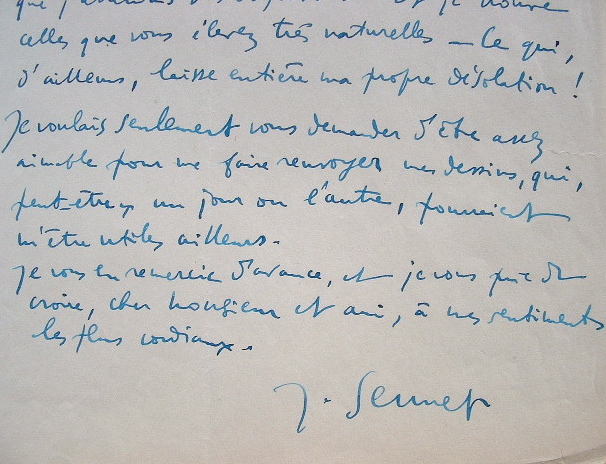 que j'avais et je trouve
celles que vous élevez très naturelles – ce qui,
d'ailleurs, laisse entière ma propre désolation !
Je voulais seulement vous demander d'être assez
aimable pour me faire renvoyer mes dessins, qui,
peut-être, un jour ou l'autre, pourraient
m'être utiles ailleurs.
Je vous en remercie d'avance, et je vous prie de
croire, cher Monsieur et ami, à mes sentiments
les plus cordiaux.
J. Sennep